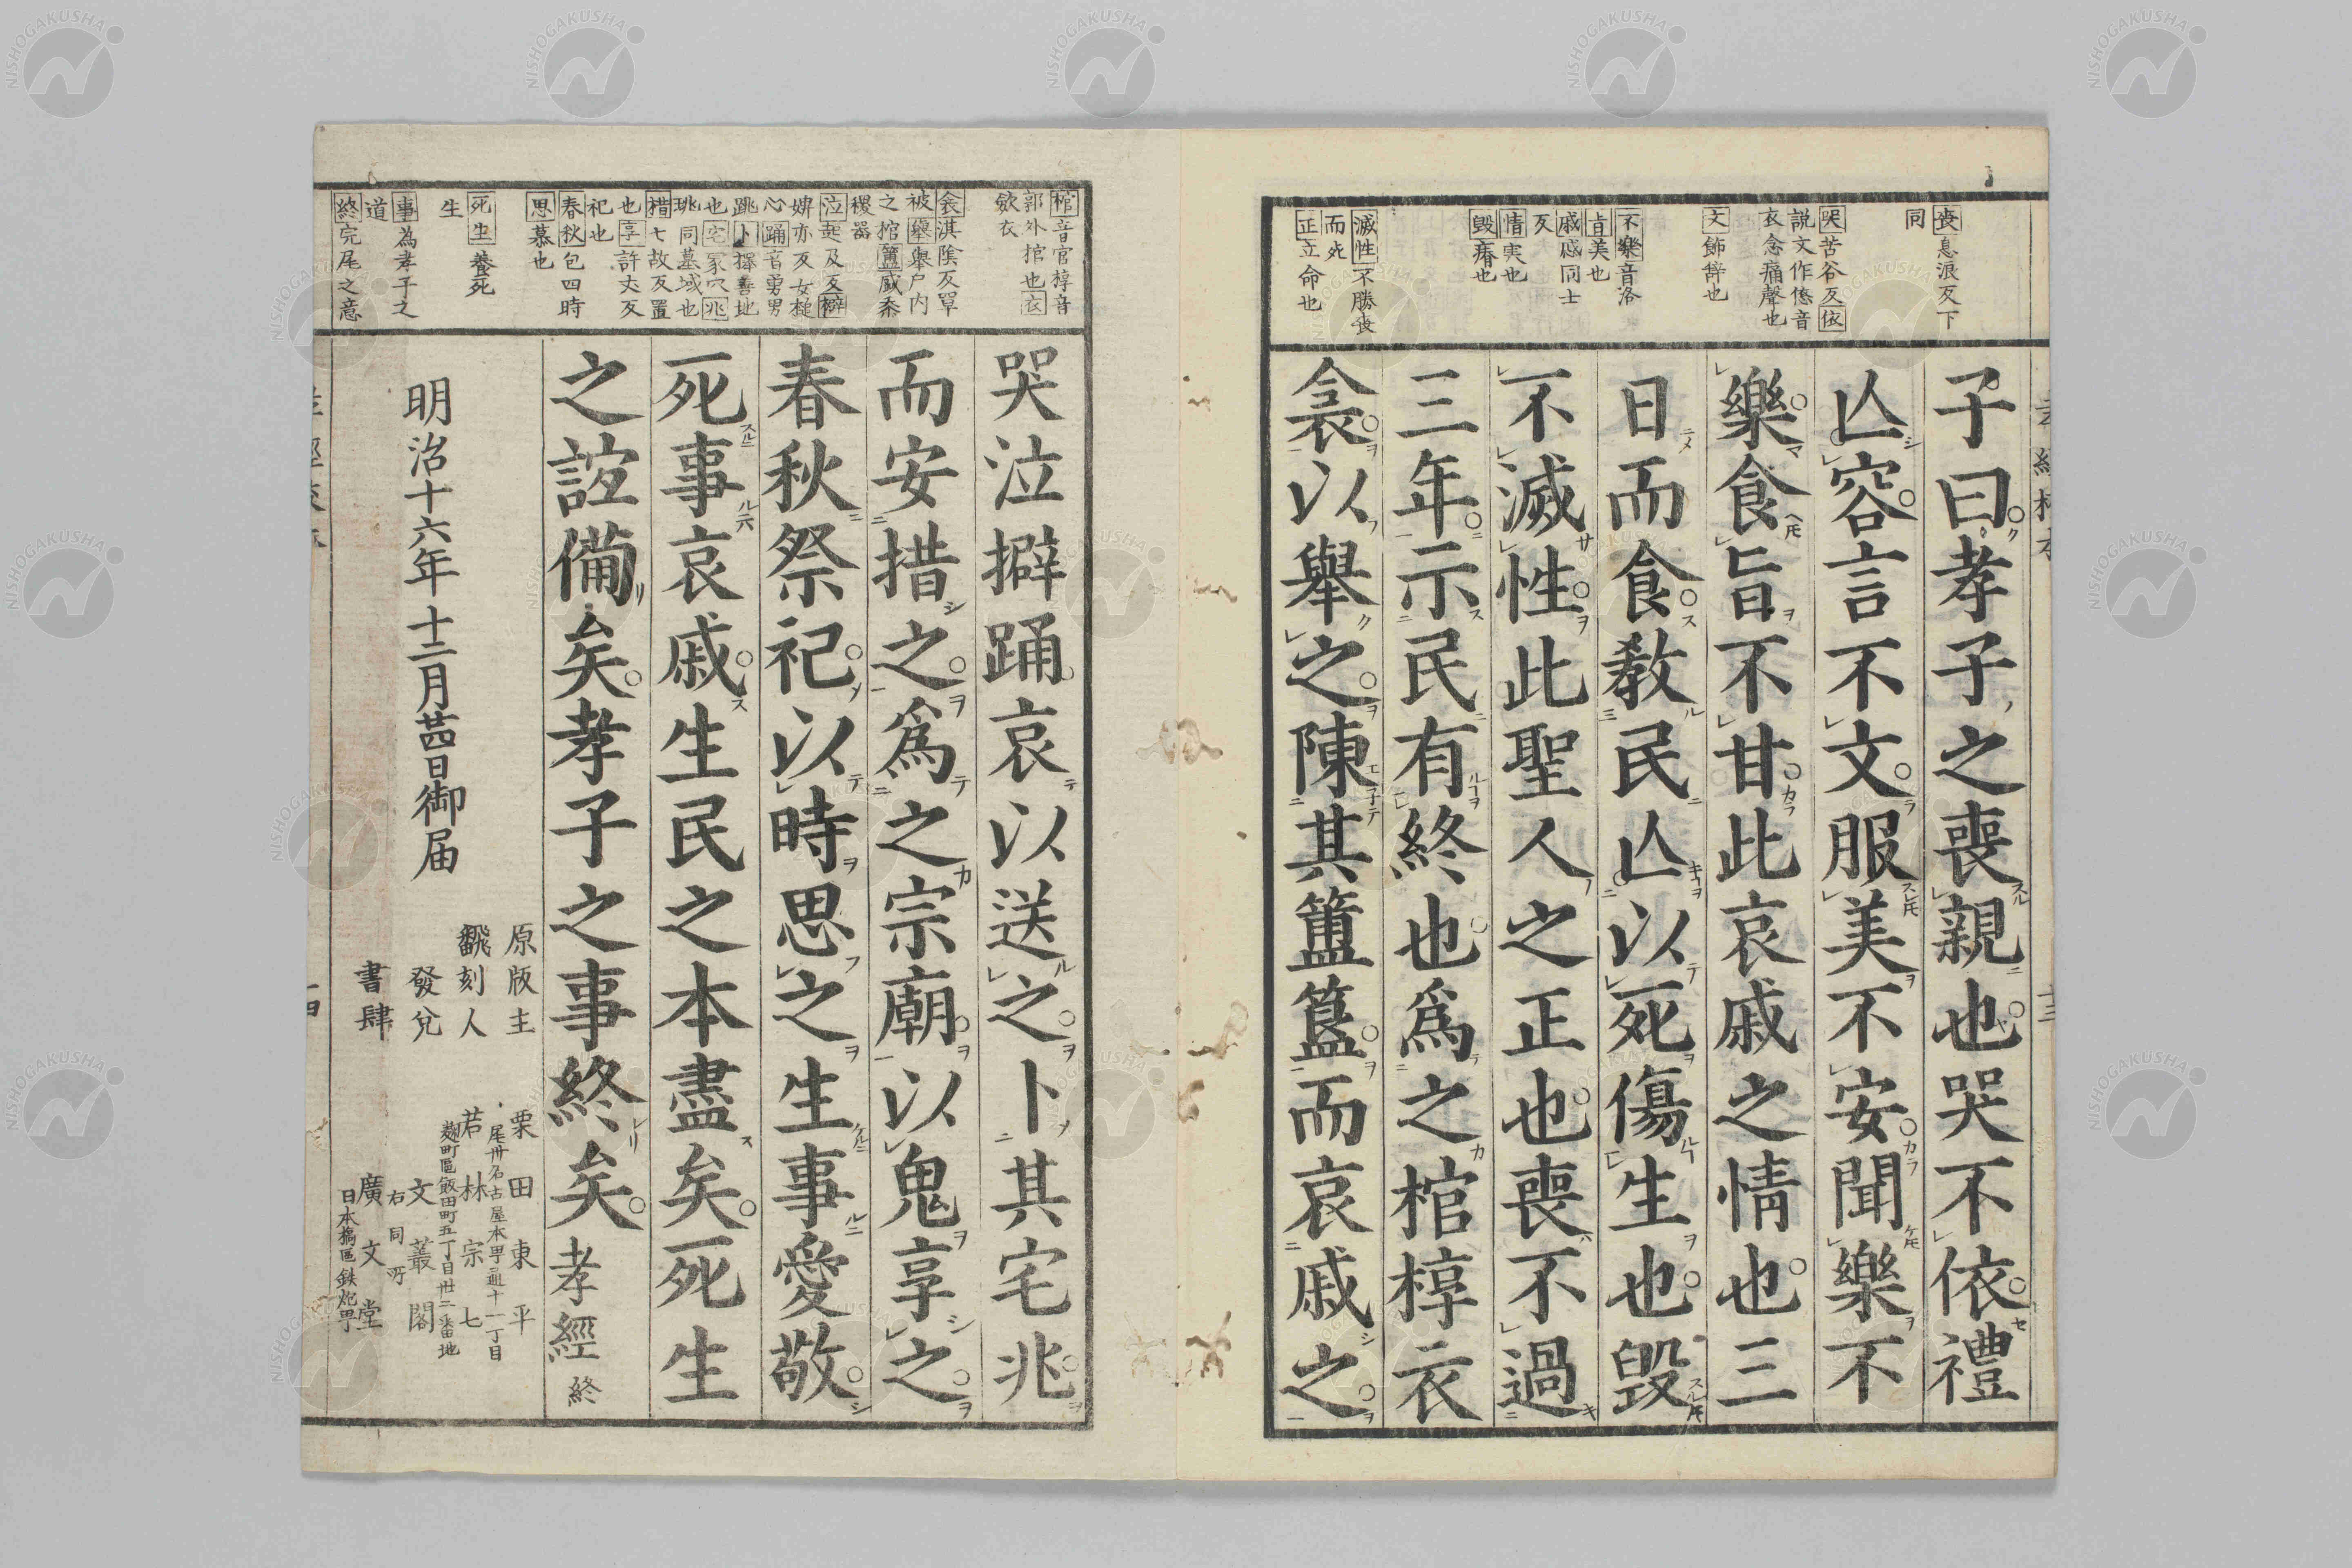 喪息浪反下
同
哭苦谷反依
説文作㥋音
衣念痛聲也
文飾辞也
不樂音洛
旨美也
戚慼同士
反
情実也
毀瘠也
滅性不勝喪
而死
正立命也
子曰孝子之喪親也哭不依禮
亾容言不文服美不安聞樂不
樂食旨不甘此哀戚之情也三
日而食教民亾以死傷生也毀
不滅性此聖人之正也喪不過
三年示民有終也爲之棺椁衣
衾以舉之陳其簠簋而哀戚之
棺音官椁音
郭外棺也衣
斂衣
衾淇陰反單
被舉舉尸内
之棺簠盛黍
稷器
泣起及反擗
婢亦反女槌
心踊音勇男
跳卜擇善地
也宅冢穴兆
垗同墓域也
措七故反置
也享許丈反
祀也
春秋包四時
思慕也
死生養死
生
事為孝子之
道
終完尾之意
哭泣擗踊哀以送之卜其宅兆
而安措之爲之宗廟以鬼享之
春秋祭祀以時思之生事愛敬
死事哀戚生民之本盡矣死生
之誼備矣孝子之事終矣孝經終
明治十六年十二月廿四日御届
原版主 栗田東平
尾州名古屋本甼通十一丁目
飜刻人 若林宗七
麹町區飯田町五丁目卅二番地
發兌 文叢閣
右同所
書肆 廣文堂
日本橋區鉄炮甼
NISHOGAKUSHA